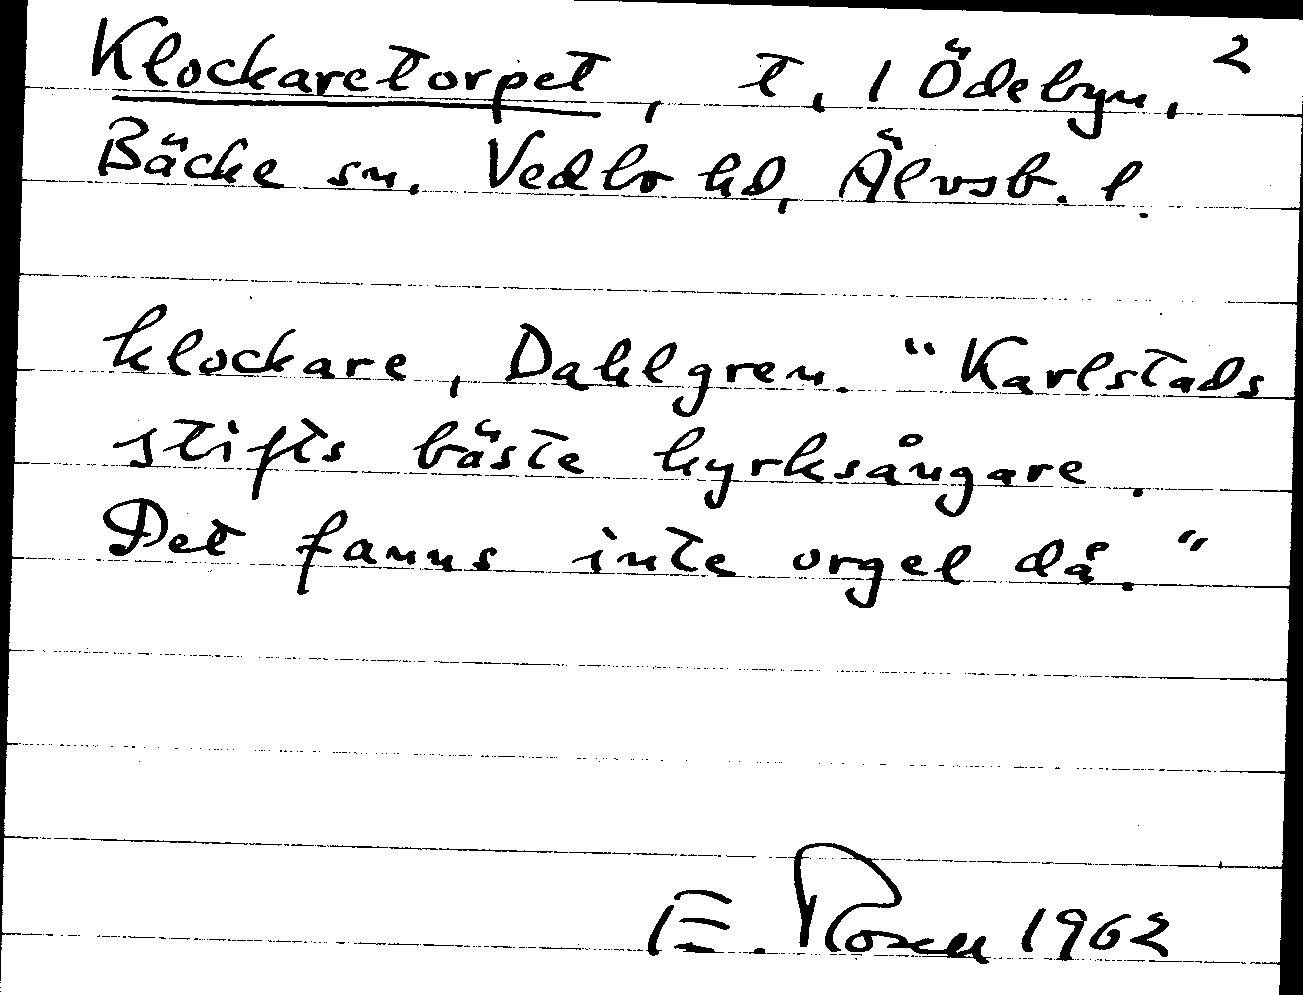 Klockaretorpet, t. / Ödebyn, 2
Bäcke sn. Vedbo hd, Älvsb. l.
klockare, Dahlgren. "Karlstads
stifts bäste kyrksångare.
Det fanns inte orgel då."
E. Rosell 1962